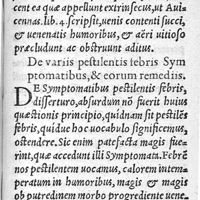 cent ea quæ appellunt extrinsecus, ut Aui-
cennas. lib. 4. scripsit, uenis contenti succi,
& uenenatis humoribus, & aëri uitioso
præcludunt ac obstruunt aditus.
De variis pestilentis febris Sym
ptomatibus, & eorum remediis.
DE Symptomatibus pestilentis febris,
disserturo, absurdum nō fuerit huius
quæstionis principio, quidnam sit pestilēs
febris, quidue hoc uocabulo significemus,
ostendere. Sic enim patefacta magis fue-
rint, quæ accedunt illi Symptomata. Febrē
nos pestilentem uocamus, calorem intem-
peratum in humoribus, magis & magis
ob putredinem morbo progrediente uene-